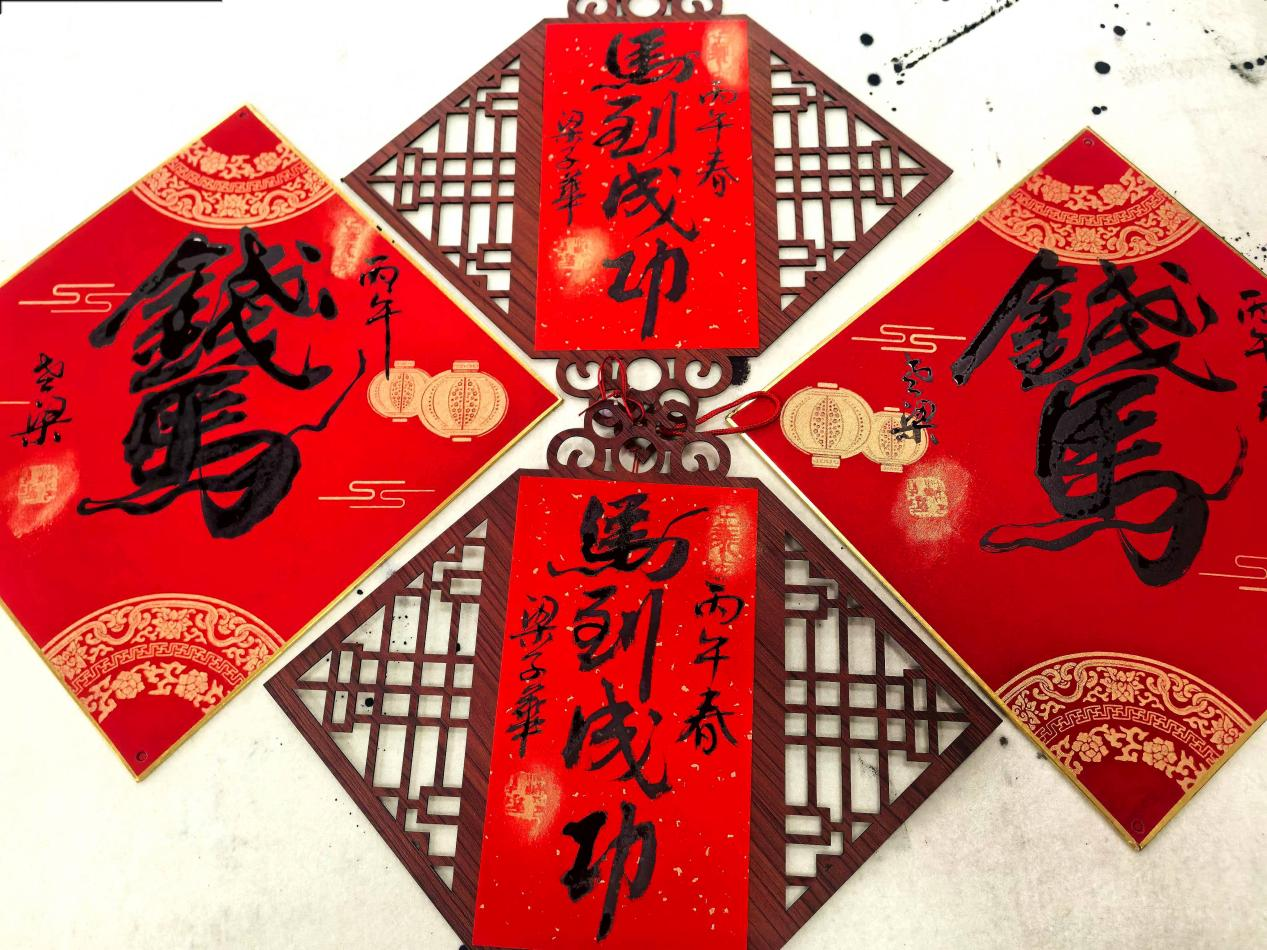 丙午春
馬到成功
梁子華
丙午
錢馬
梁
丙午
錢馬
梁
丙午春
馬到成功
梁子華